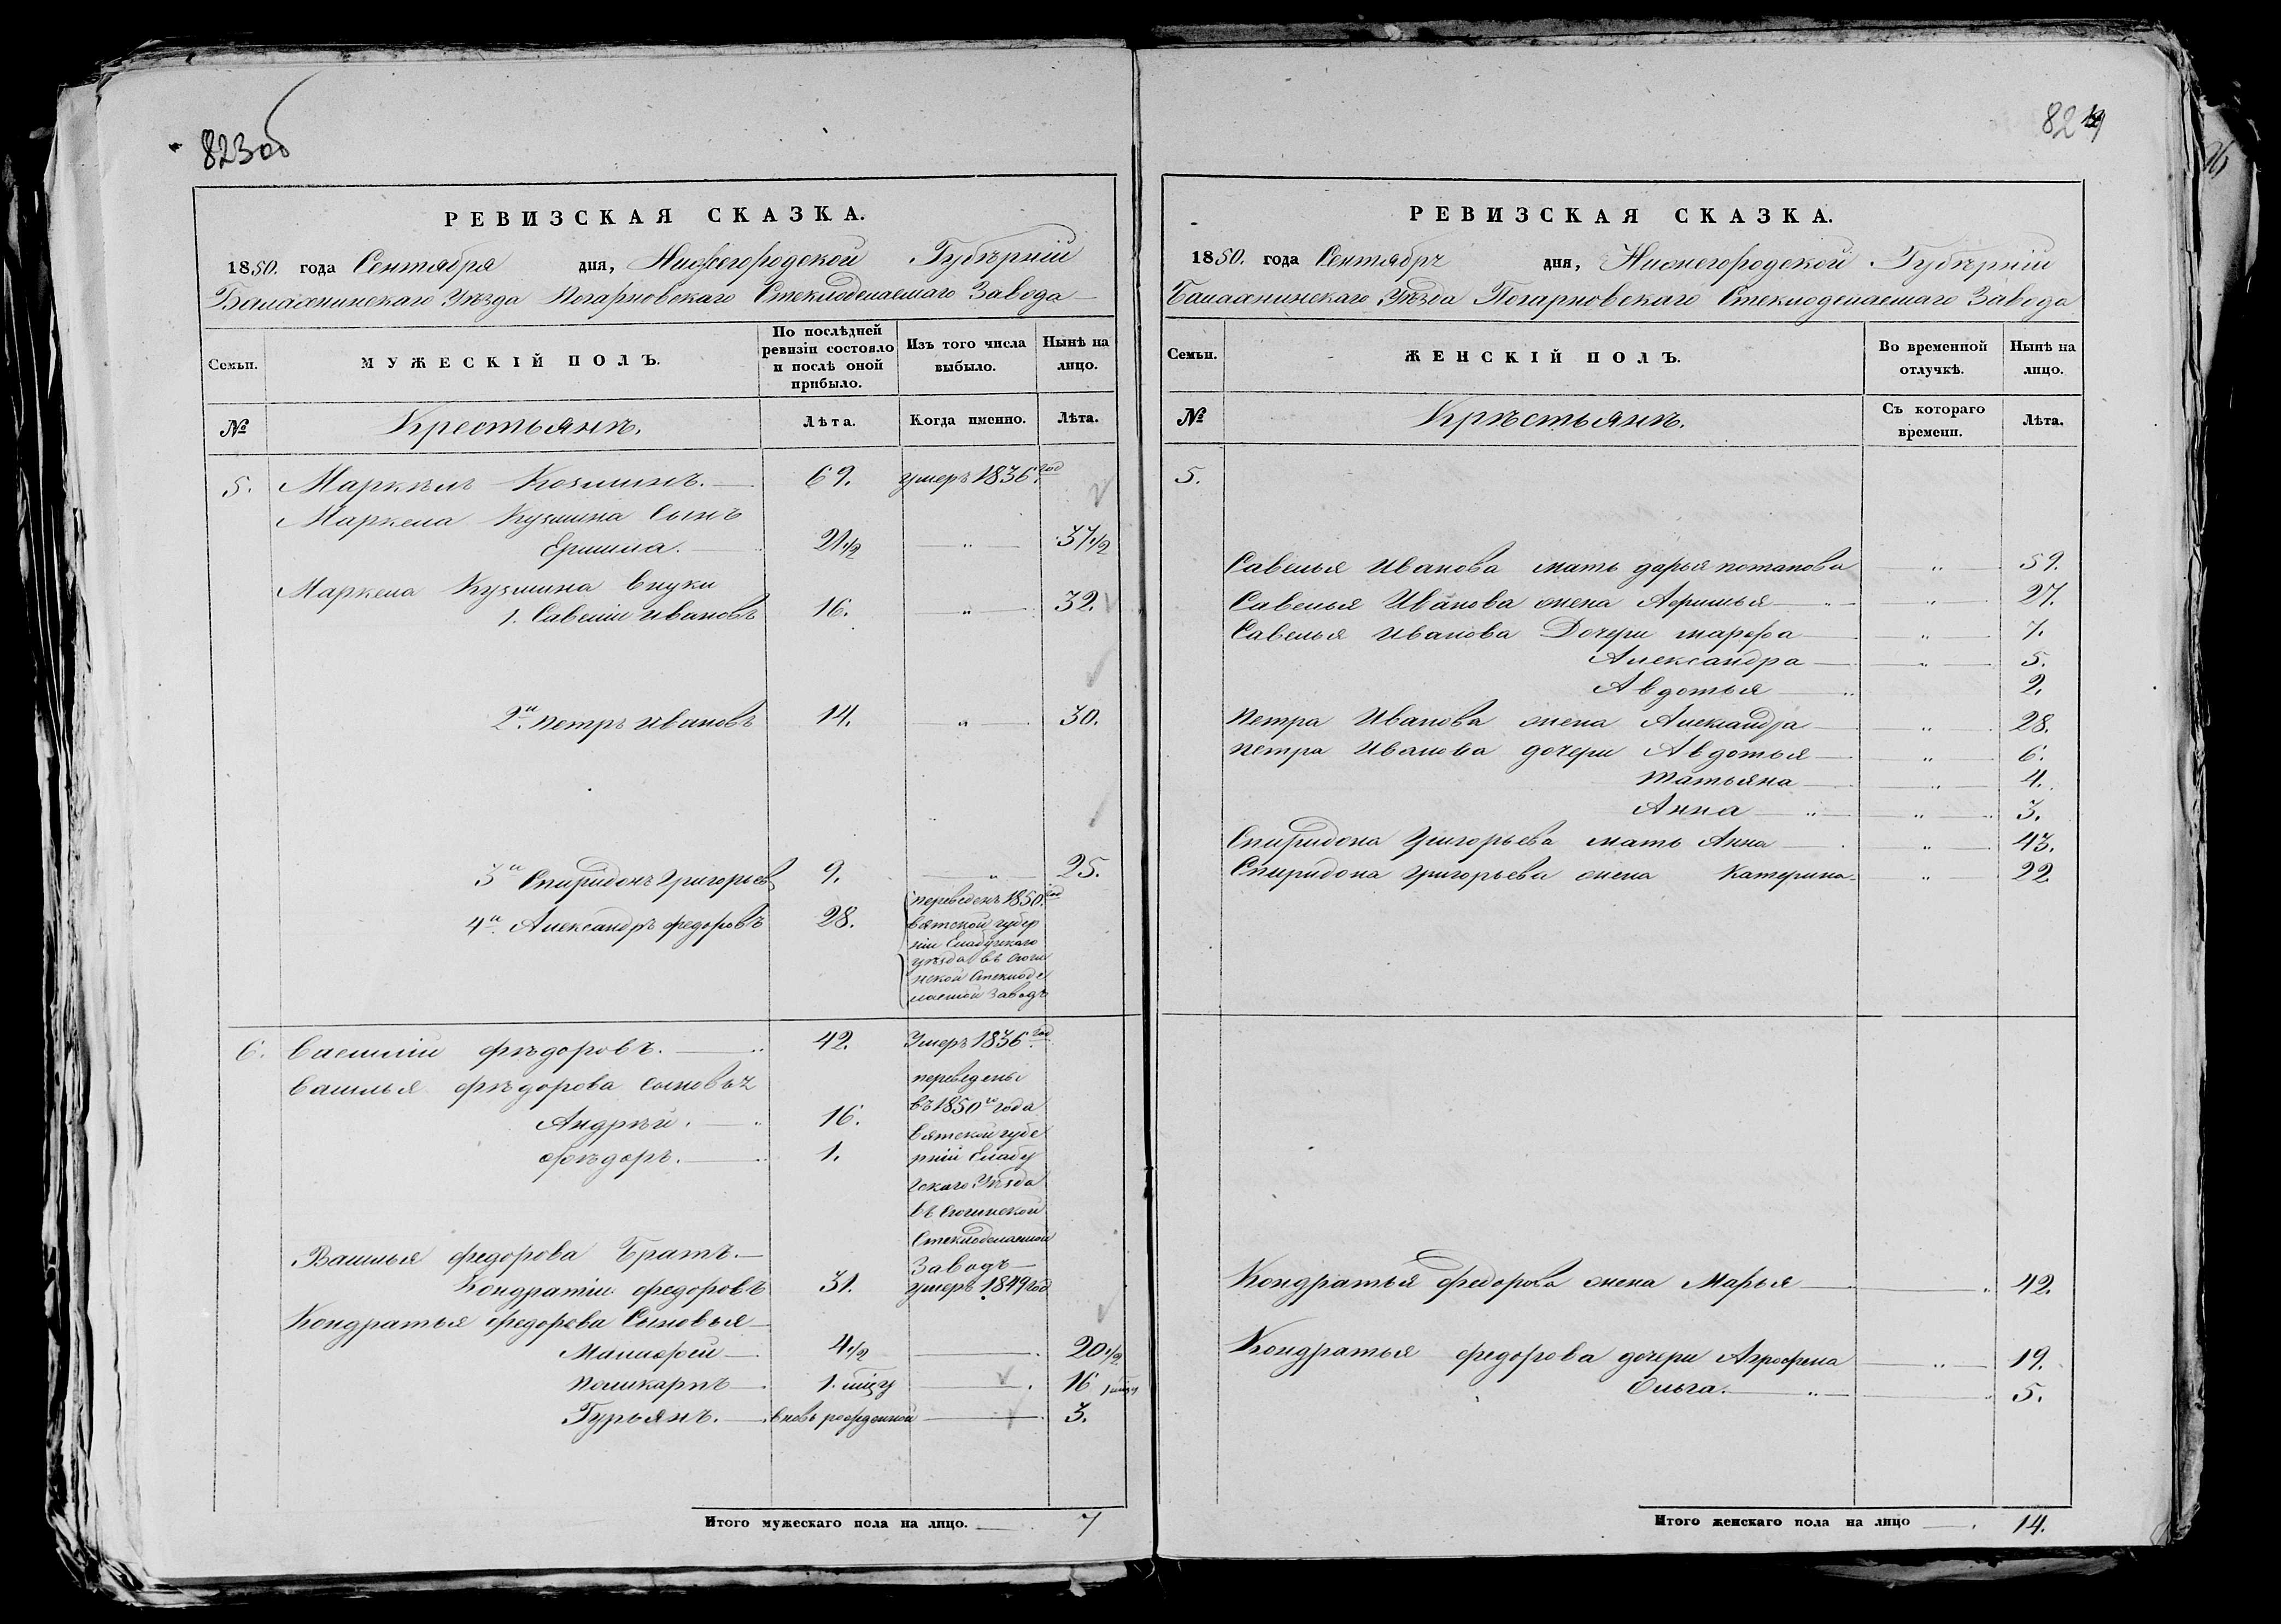 823об
РЕВИЗСКАЯ СКАЗКА.
1850. года Сентября дня, Нижегородской Губѣрнiи
Балахнинскаго Уѣзда Погарновскаго Стеклоделаемаго Завода
Семьи. МУЖЕСКІЙ ПОЛЪ. По послѣдней ревизіи состояло и послѣ оной прибыло. Изъ того числа выбыло. Нынѣ на лицо.
№ Крестьянъ. Лѣта. Когда именно. Лѣта.
5. Маркѣлъ Козминъ. 69. умеръ 1836 год
Маркела Кузмина Сынъ
Ермила. 21 1/2 37 1/2
Маркела Кузмина внуки
1. Савелiи Ивановъ 16. 32.
2й Петръ Ивановъ 14. 30.
3й Спиридонъ Григорьев 9. 25.
4й Александръ федоровъ 28. переведенъ 1850 год
вятской губер
нiи Елабугскаго
уѣзда въ
ской Стеклоде
лаемой заводъ
6. Василiи фѣдоровъ. 42. Умеръ 1836 год
Василья фѣдорова сыновья
переведены
въ 1850м года
Андрѣй. 16.
вятской губе
фѣдоръ. 1. рнiи Елабу
гскаго Уѣзда
въ
Стеклоделаемой
Василья федорова Братъ.
Заводъ
Кондратiи федоровъ 31. умеръ 1849 год
Кондратья федорова Сыновья
Малафеи 4 1/2 20 1/2
Поликарпъ 1. мiсу 16 1 мiсу
Гурьянъ. вновь рожденной 3.
Итого мужескаго пола на лицо. 7
824
РЕВИЗСКАЯ СКАЗКА.
1850. года Сентябрь дня, Нижегородской Губѣрнiи
Балахнинскаго Уѣзда Погарновскаго Стеклоделаемаго Завода
Семьи. ЖЕНСКІЙ ПОЛЪ. Во временной отлучкѣ. Нынѣ на лицо.
№ Крѣстьянъ. Съ котораго времени. Лѣта.
5.
Савелья Иванова мать дарья потапова 59.
Савелья Иванова жена Афимья 27.
Савелья Иванова Дочери марфа 7.
Александра 5.
Авдотья 2.
Петра Иванова жена Александра 28.
Петра Иванова дочери Авдотья 6.
Татьяна 4.
Анна 3.
Спиридона Григорьева мать Анна 43.
Спиридона Григорьева жена Катерина 22
Кондратья федорова жена Марья 42.
Кондратья федорова дочери Аграфена 19.
Ольга. 5.
Итого женскаго пола на лицо 14.